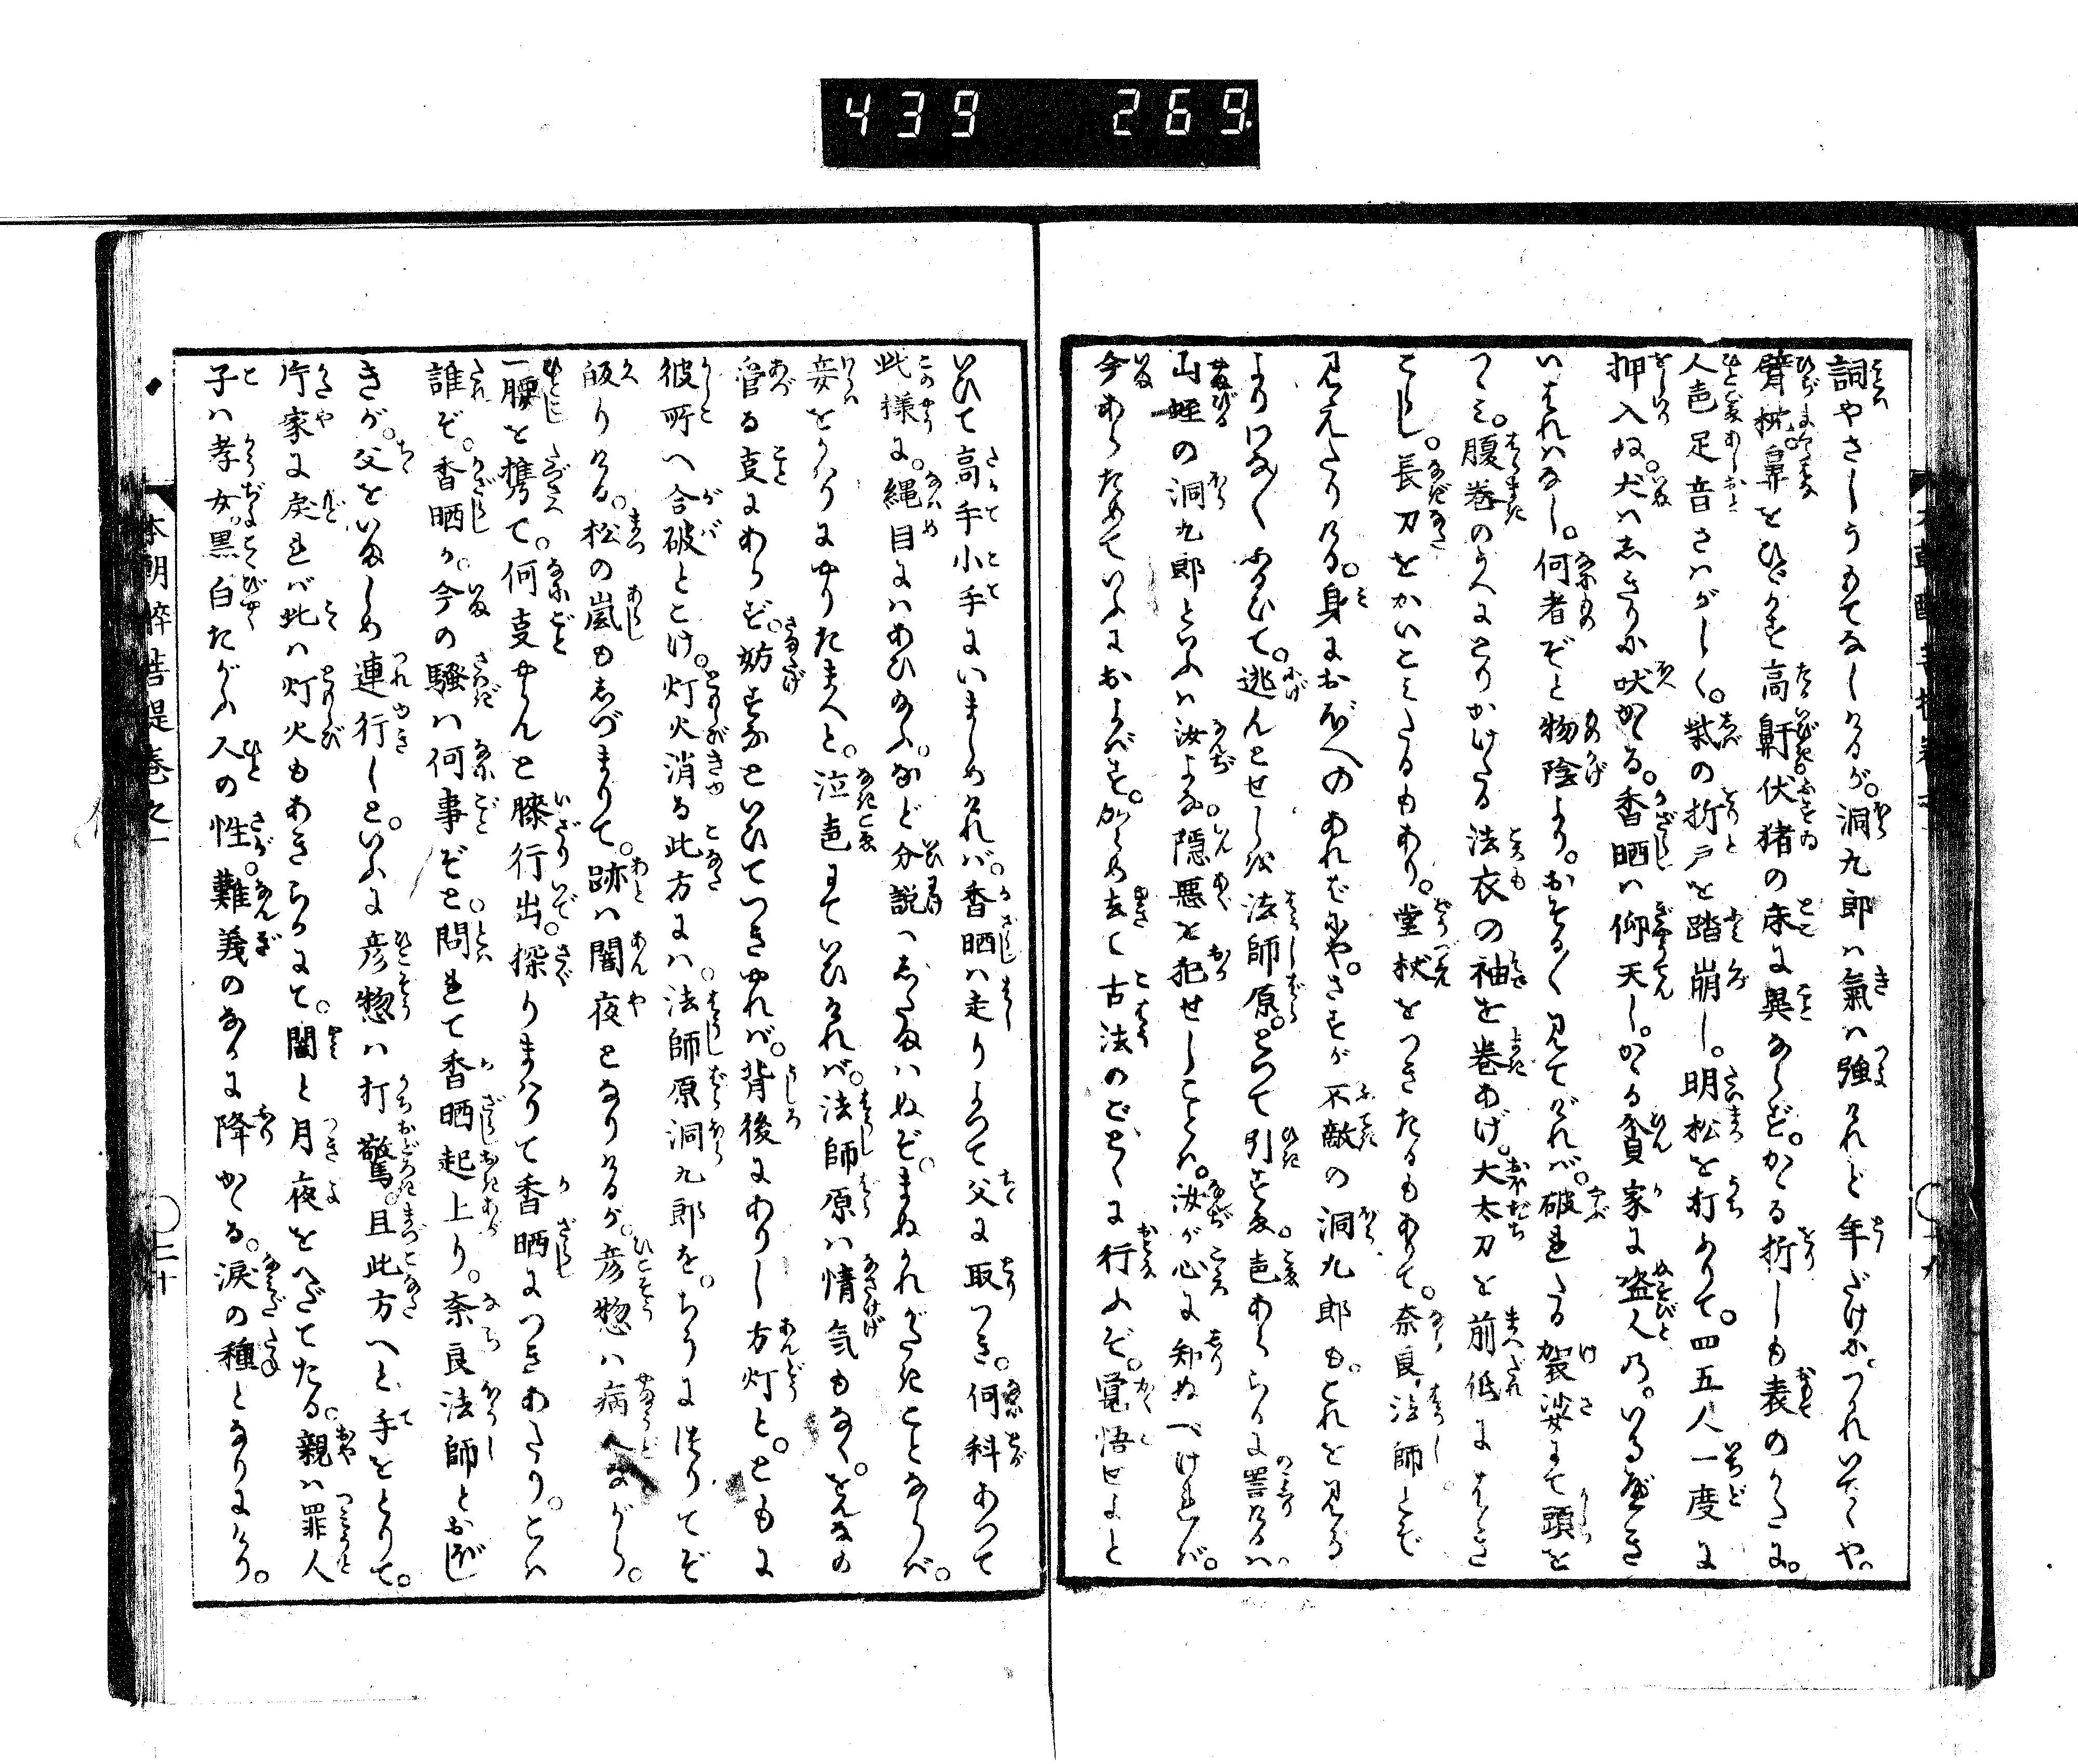 439 269
詞やさしうもてなしけるが。洞九郎は氣は強けれど年だけに。つかれいでくや。
臂枕鼻をひゞかす高鼾伏猪の床に異ならず。かゝる折しも表のかたに。
人声足音さはがしく。柴の折戸を踏崩し。明松を打ふりて。四五人一度に
押入ぬ犬はしきりに吠かゝる。香晒は仰天し。かゝる貧家に盗人の。いるべき
いはれはなし。何者ぞと物陰より。おそる〳〵見てあれば。破れたる袈裟にて頭を
つゝみ。腹巻のうへにとりかけたる法衣の袖を巻あげ。大太刀を前低にはさみ
こらし。長刀をかいこみたるもあり。堂杖をつきたるもありて。奈良法師とぞ
見えたりける。身におぼへのあればにや。さすが不敵の洞九郎も。これを見る
よりわなゝくふるひて。逃んとせしを法師原。とつて引すゑ。声あらゝかに詈けるは。
山蛭の洞九郎といふは汝よな。隠悪を犯せしことは。汝が心に知ぬべければ。
今あらためていふにおよばず。からめ去て古法のごとくに行ふぞ。覚悟せよと
いひて高手小手にいましめければ。香晒は走りよつて父に取つき。何科あつて
此様に。縄目にはあひ給ふ。など分説つしたまはぬぞ。まぬかれがたきことならば。
妾をかはりにやりたまへと。泣声にていひければ。法師原は情気もなく。をんなの
管る支にあらず。妨するなといひてつきやれば。背後にありし方灯と。ともに
彼所へ合破とこけ。灯火消る此方には。法師原洞九郎を。ちうにつりてぞ
皈りける。松の嵐もしづまりて。跡は闇夜となりけるが。彦惣は病人ながら。
一腰を携て。何支やらんと膝行出。探りまはりて香晒につきあたり。こは
誰ぞ。香晒か。今の騒は何事ぞと問れて香晒起上り。奈良法師とおぼし
きが。父をいましめ連行しと。いふに彦惣は打驚。且此方へと手をとりて。
片家に戻れば此は灯火もあきらかにて。闇と月夜をへだてたる。親は罪人
子は孝女。黒白たがふ人の性。難義のなかに降かゝる。涙の種となりにけり。
本朝酔菩提巻之一
〇二十